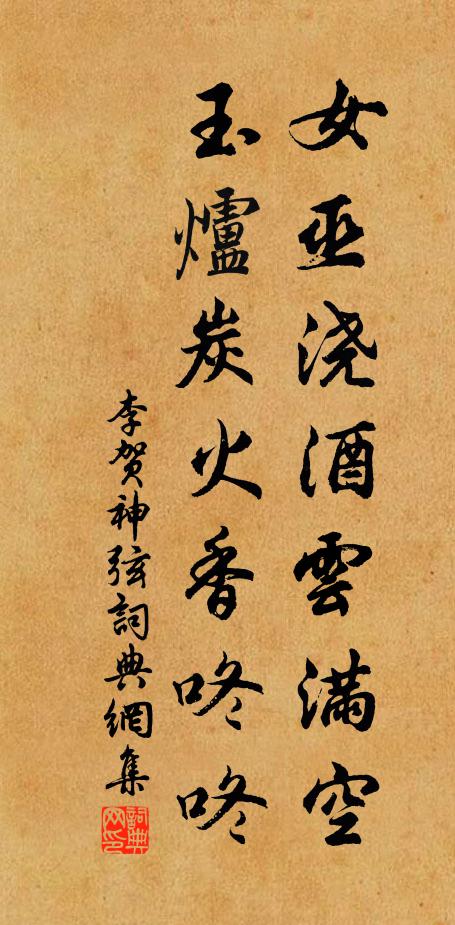 女巫浇酒雲满空
玉爐炭火香咚咚
李贺神弦詞典網集
詞典网印